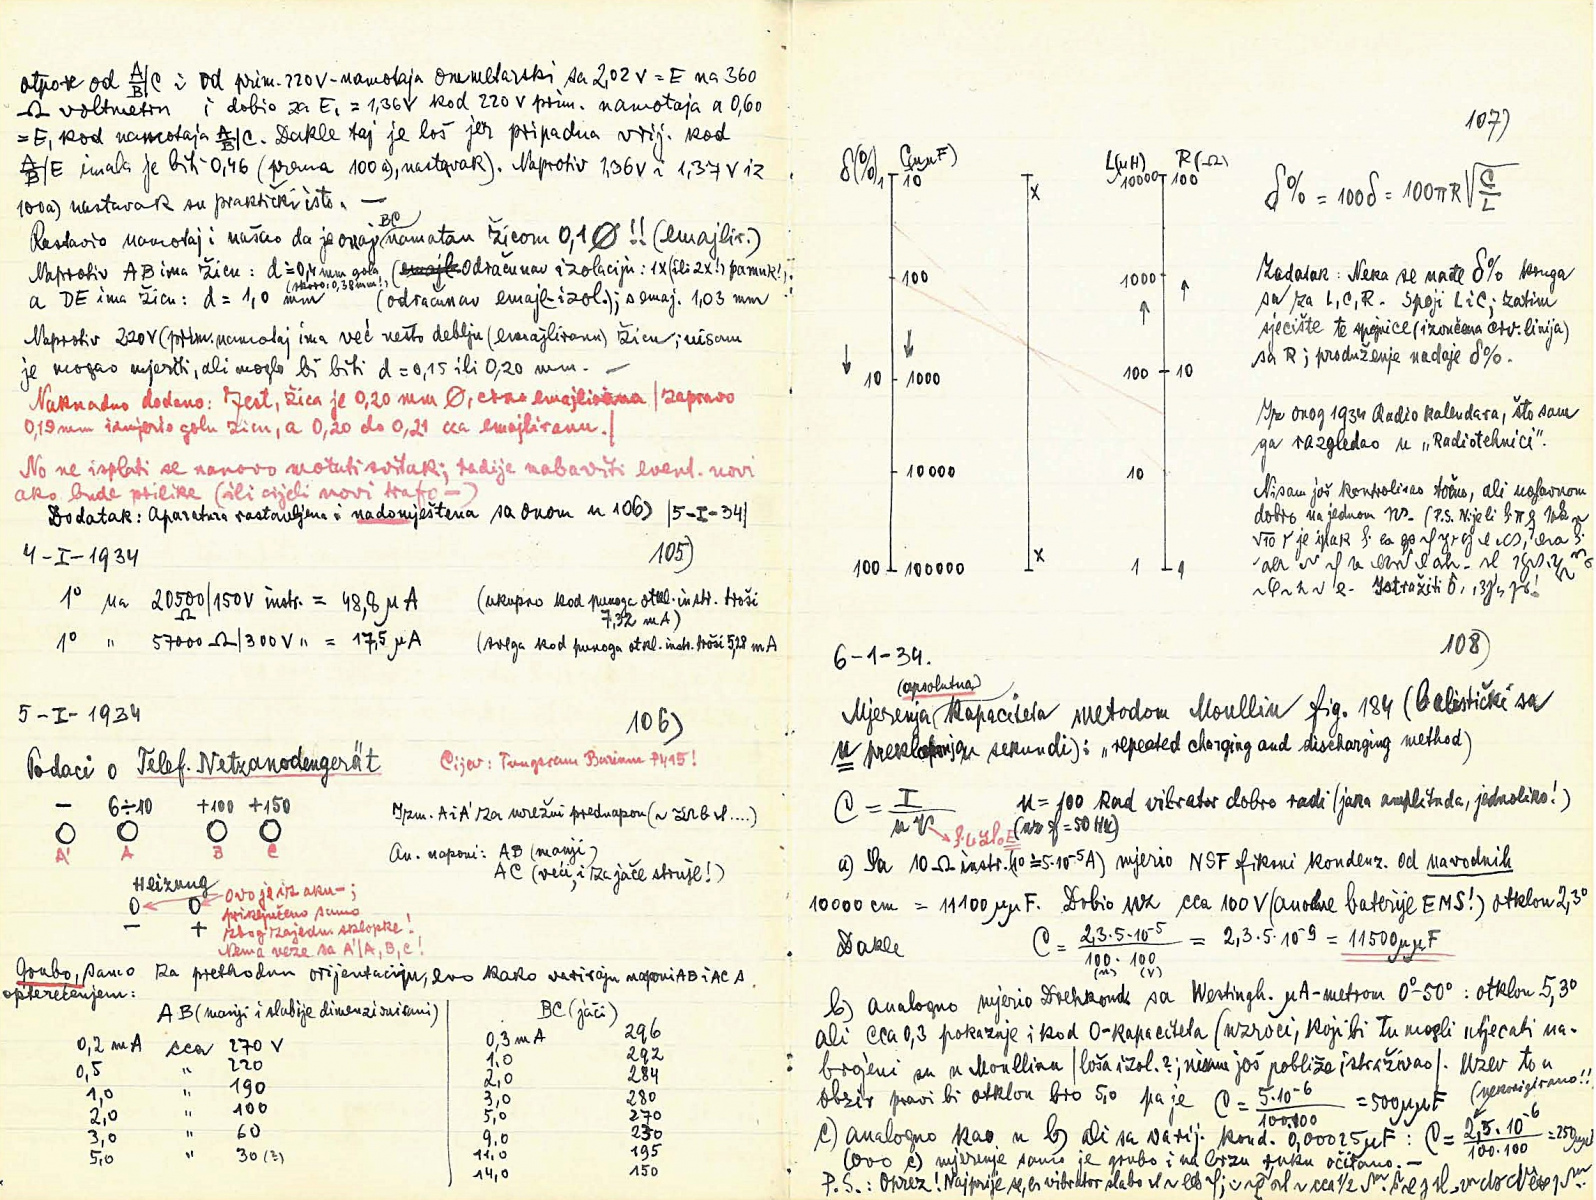 otpore od A/B|C i od prim. 220V-namotaja ommetarski sa 2,02 V = E na 360
Ω voltmetru i dobio za E₁ = 1,36V kod 220 V prim. namotaja a 0,60
= E₁ kod namotaja A/B|C. Dakle taj je loš jer pripadna vrij. kod
A/B|E imala je biti 0,46 (prema 100a), nastavak). Naprotiv 1,36V i 1,37 V iz
100a) nastavak su praktički isto. —
Rastavio namotaj i našao da je onaj BC namotan žicom 0,1 Ø !! (emajlir.)
Naprotiv AB ima žicu: d = 0,4 mm gola (odračunav izolaciju: 1x (ili 2x!) pamuk!)
(skoro: 0,38 mm!)
a DE ima žicu: d = 1,0 mm (odračunav emajl-izol.); s emaj. 1,03 mm
Naprotiv 220V (prim. namotaj ima već nešto deblju (emajliranu) žicu; nisam
je mogao mjeriti, ali moglo bi biti d = 0,15 ili 0,20 mm. —
Naknadno dodano: Jest, žica je 0,20 mm Ø, emajlirana | zapravo
0,19 mm izmjerio golu žicu, a 0,20 do 0,21 cca emajliranu.|
No ne isplati se nanovo motati svitak; radije nabaviti event. novi
ako bude prilike (ili cijeli novi trafo —)
Dodatak: Aparatura rastavljena i nadomještena sa onom u 106) |5-I-34|
4-I-1934 105)
1° na 20500 Ω/150V instr. = 48,8 μA (ukupno kod punoga otkl. instr. troši
7,32 mA)
1° " 57000 Ω/300 V " = 17,5 μA (svega kod punoga otkl. instr. troši 5,28 mA
5-I-1934 106)
Podaci o Telef. Netzanodengerät Cijev: Tungsram Barium P415!
− 6÷10 +100 +150
A' A B C
Izm. A i A' za mrežni prednapon
An. naponi: AB (manji)
AC (veći, i za jače struje!)
Heizung
− +
Ovo je iz aku-;
priključeno samo
zbog zajedn. sklopke!
Nema veze sa A'|A, B, C!
Grubo, samo za prethodnu orijentaciju, evo kako variraju naponi AB i AC s
opterećenjem:
AB (manji i slabije dimenzionirani) BC (jači)
0,2 mA cca 270 V
0,5 " 220
1,0 " 190
2,0 " 100
3,0 " 60
5,0 " 30 (?)
0,3 mA 296
1,0 292
2,0 284
3,0 280
5,0 270
9,0 230
11,0 195
14,0 150
107)
δ(%) C(μμF) L(μH) R(Ω)
1 10 x 10000 100
100 1000
10 1000 100 10
10000 10
100 100000 x 1 1
δ% = 100δ = 100πR√(C/L)
Zadatak: Neka se nađe δ% kruga
sa/za L, C, R. Spoji L i C; zatim
sjecište te spojnice (izvučena crv. linija)
sa R; produženje nadaje δ%.
Iz onog 1934 Radio kalendara, što sam
ga razgledao u „Radiotehnici".
Nisam još kontrolisao točno, ali uglavnom
dobro na jednom
Istražiti
6-1-34. 108)
(apsolutna)
Mjerenja kapaciteta metodom Moullin fig. 184 (balistički sa
n preklapanja u sekundi): „repeated charging and discharging method)
C = I/nV n = 100 kad vibrator dobro radi (jaka amplituda, jednoliko!)
(uz f = 50 Hz)
a) Sa 10 Ω instr. (1° = 5·10⁻⁵A) mjerio NSF fiksni kondenz. od navodnih
10000 cm = 11100 μμF. Dobio uz cca 100 V (anodne baterije EMS!) otklon 2,3°
Dakle C = 2,3·5·10⁻⁵/100·100 = 2,3·5·10⁻⁹ = 11500 μμF
(n) (V)
b) analogno mjerio Drehkond. sa Westingh. μA-metrom 0°-50°: otklon 5,3°
ali cca 0,3 pokazuje i kod 0-kapaciteta (uzroci, koji bi tu mogli utjecati na-
brojeni su u Moullinu |loša izol.?; nisam još pobliže istraživao|. Uzev to u
obzir pravi bi otklon bio 5,0 pa je C = 5·10⁻⁶/100·100 = 500 μμF (nekorigirano!!)
c) analogno kao u b) ali sa varij. kond. 0,00025 μF: C = 2,5·10⁻⁶/100·100 = 250 μμF
(ovo c) mjerenje samo je grubo i na brzu ruku očitano. —
P.S.: Oprez! Najprije se, vibrator slabo